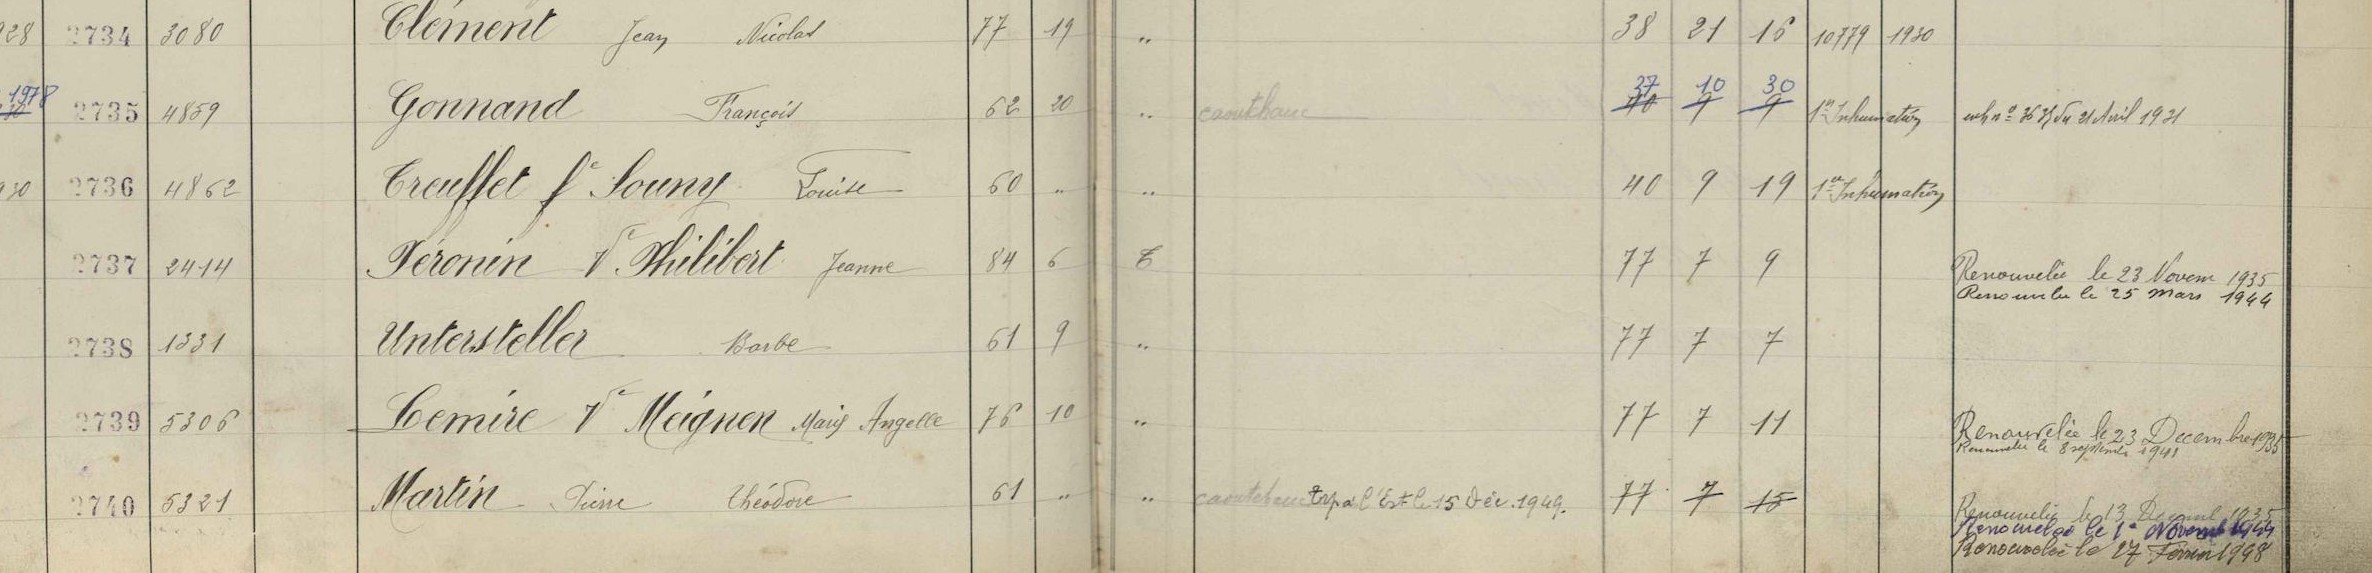 928 2734 3080 Clément Jean Nicolas 77 19 " 38 21 16 10779 1930
1978 37 10 30
2735 4859 Gonnand François 62 20 " caoutchouc 40 9 9 1re Inhumation du 21 Avril 1931
930 2736 4862 Treuffet fe Souny Louise 60 " " 40 9 19 1re Inhumation
2737 2414 Péronin Ve Philibert Jeanne 84 6 T 77 7 9 Renouvelée le 23 Novem 1935
Renouvelée le 25 mars 1944
2738 1331 Untersteller Barbe 61 9 " 77 7 7
2739 5306 Lemire Ve Meignen Marie Angelle 76 10 " 77 7 11 Renouvelée le 23 Decembre 1935
Renouvelée le 8 septembre 1941
2740 5321 Martin Pierre Théodore 61 " " caoutchouc Trp à l'Est le 15 Déc. 1949. 77 7 15 Renouvelée le 13 1935
Renouvelée le 1er Novemb 1944
Renouvelée le 27 Février 1948